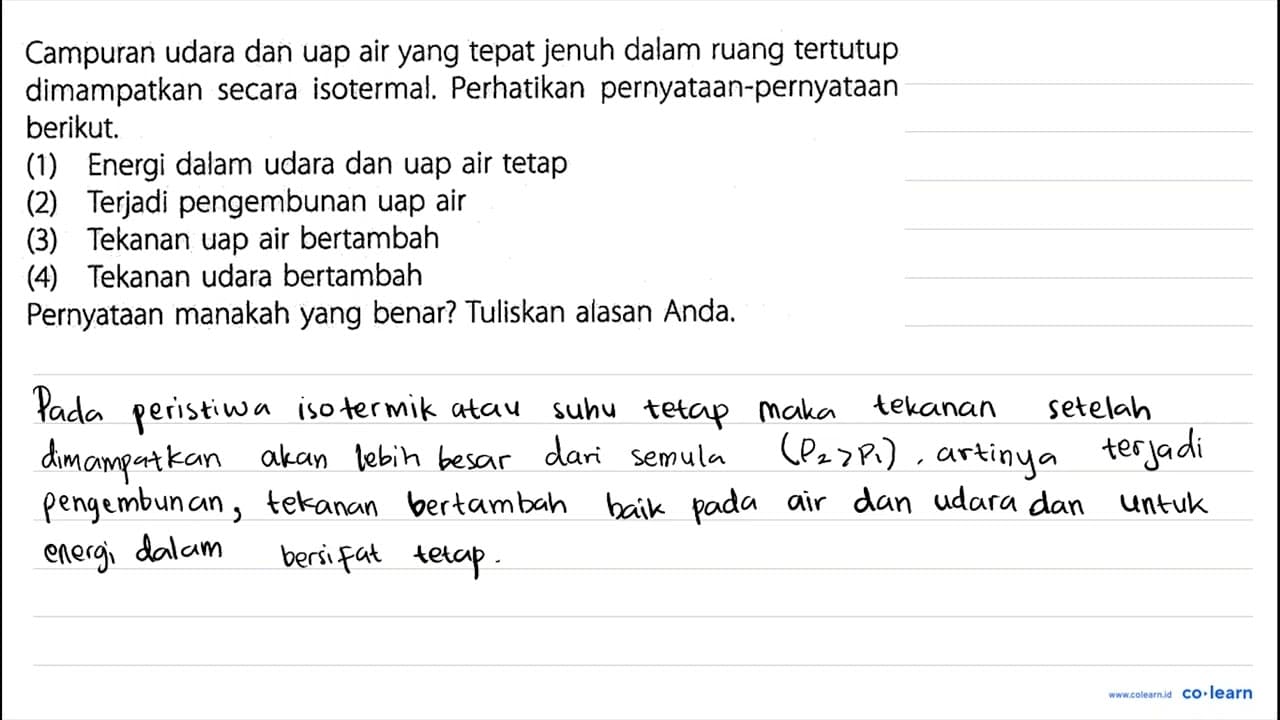 Campuran udara dan uap air yang tepat jenuh dalam ruang tertutup
dimampatkan secara isotermal. Perhatikan pernyataan-pernyataan
berikut.
(1) Energi dalam udara dan uap air tetap
(2) Terjadi pengembunan uap air
(3) Tekanan uap air bertambah
(4) Tekanan udara bertambah
Pernyataan manakah yang benar? Tuliskan alasan Anda.
Pada peristiwa isotermik atau suhu tetap maka tekanan setelah
dimampatkan akan lebih besar dari semula (P₂>P₁), artinya terjadi
pengembunan, tekanan bertambah baik pada air dan udara dan untuk
energi dalam bersifat tetap.
www.colearn.id co·learn